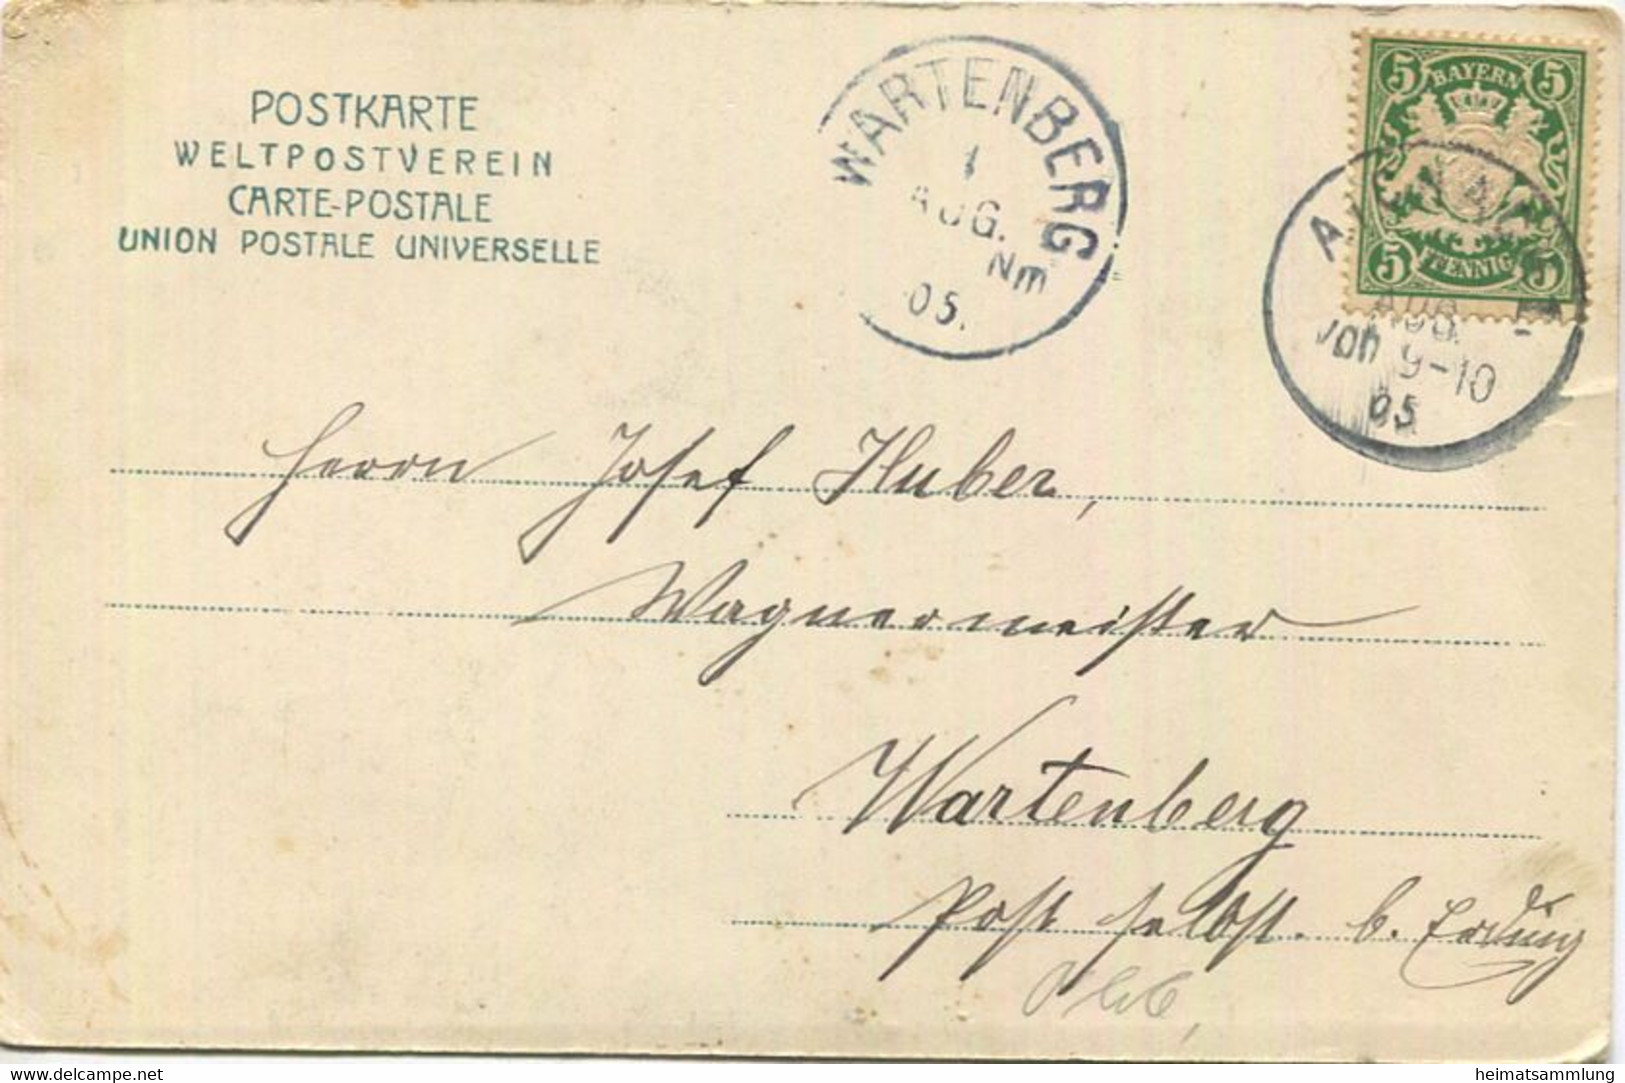 POSTKARTE
WELTPOSTVEREIN
CARTE-POSTALE
UNION POSTALE UNIVERSELLE
WARTENBERG
1
AUG.
Nm
05.
5 BAYERN 5
5 PFENNIG 5
AUG.
Vorm 9-10
05
Herrn Josef Huber,
Wagnermeister
Wartenberg
Post selbst. b. Erding
delcampe.net
heimatsammlung